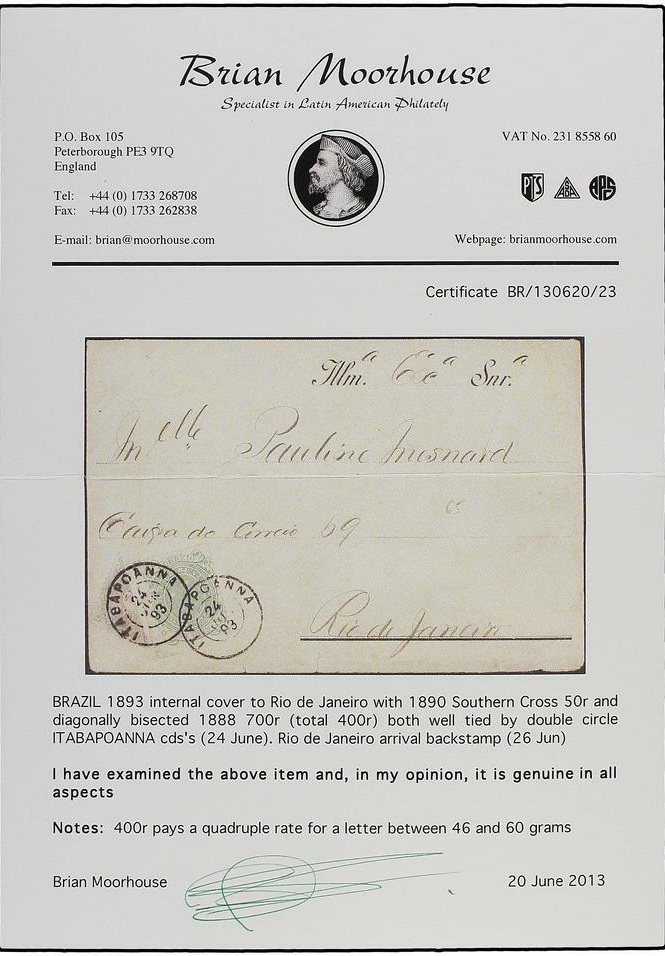 Brian Moorhouse
Specialist in Latin American Philately
P.O. Box 105
Peterborough PE3 9TQ
England
Tel: +44 (0) 1733 268708
Fax: +44 (0) 1733 262838
E-mail: brian@moorhouse.com
VAT No. 231 8558 60
PTS
ASDA
APS
Webpage: brianmoorhouse.com
Certificate BR/130620/23
Illm.a Exc.a Snr.a
Melle Pauline Mesnard
Caixa do Correio 69
65
ITABAPOANNA
24
JUN
93
ITABAPOANNA
24
93
Rio de Janeiro
BRAZIL 1893 internal cover to Rio de Janeiro with 1890 Southern Cross 50r and
diagonally bisected 1888 700r (total 400r) both well tied by double circle
ITABAPOANNA cds's (24 June). Rio de Janeiro arrival backstamp (26 Jun)
I have examined the above item and, in my opinion, it is genuine in all
aspects
Notes: 400r pays a quadruple rate for a letter between 46 and 60 grams
Brian Moorhouse
20 June 2013